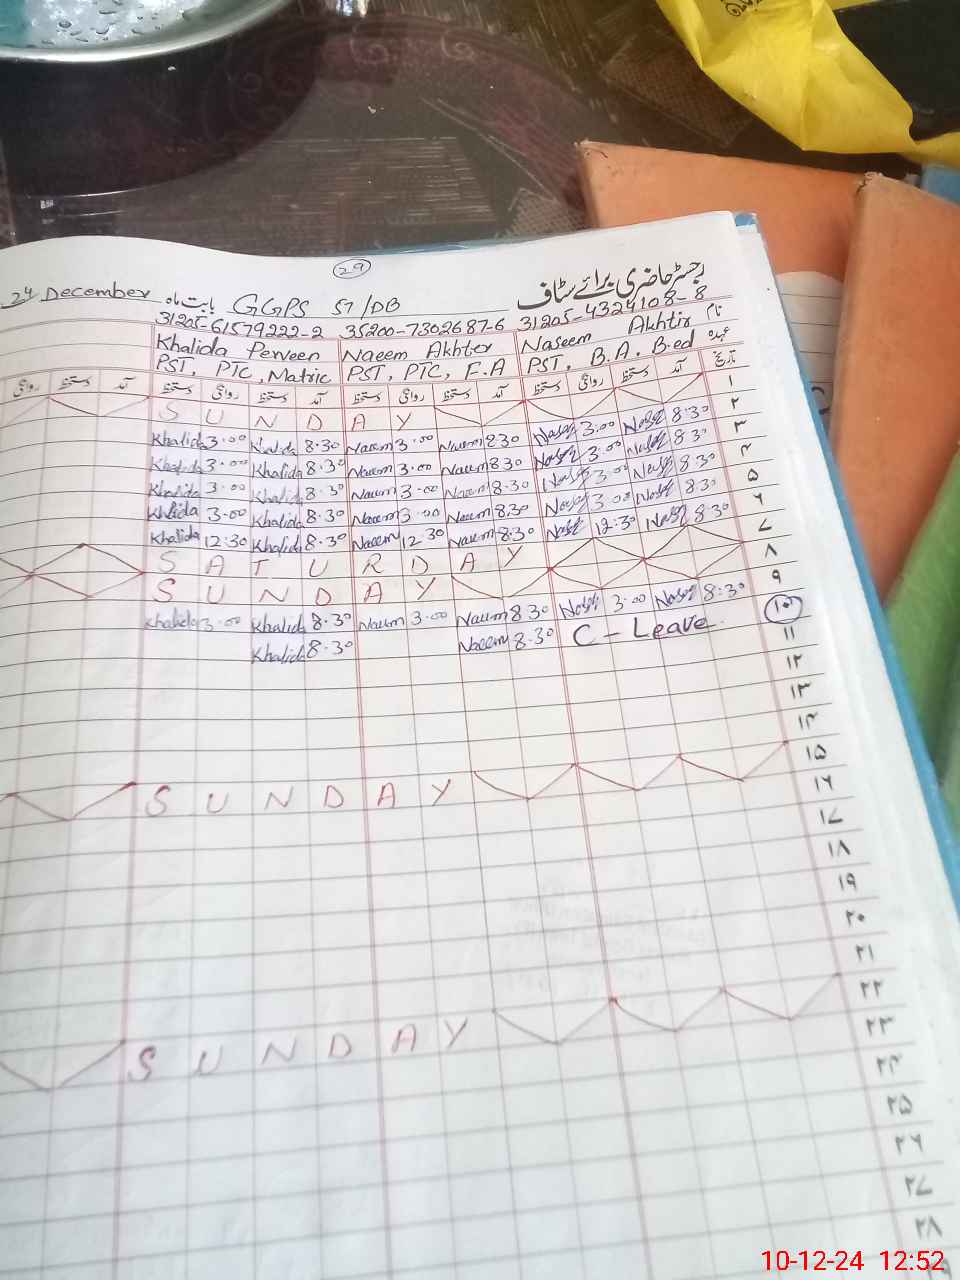 29
رجسٹر حاضری برائے سٹاف
24 December بابت ماہ GGPS 57/DB
31205-61579222-2 35200-7302687-6 31205-4324108-8 نام
Khalida Perveen Naeem Akhter Naseem Akhtir عہدہ
PST, PTC, Matric PST, PTC, F.A PST, B.A, B.ed تاریخ
روانگی دستخط آمد دستخط روانگی دستخط آمد دستخط روانگی دستخط آمد دستخط روانگی دستخط آمد
S U N D A Y ۱
Khalida 3.00 Khalida 8.30 Naeem 3.00 Naeem 8.30 3.00 8.30 ۲
Khalida 3.00 Khalida 8.30 Naeem 3.00 Naeem 8.30 3.00 8.30 ۳
Khalida 3.00 Khalida 8.30 Naeem 3.00 Naeem 8.30 3.00 8.30 ۴
Khalida 3.00 Khalida 8.30 Naeem 3.00 Naeem 8.30 3.00 8.30 ۵
Khalida 12.30 Khalida 8.30 Naeem 12.30 Naeem 8.30 12.30 8.30 ۶
S A T U R D A Y ۷
S U N D A Y ۸
Khalida 3.00 Khalida 8.30 Naeem 3.00 Naeem 8.30 3.00 8.30 ۹
Khalida 8.30 Naeem 8.30 C - Leave ۱۰
۱۱
۱۲
۱۳
۱۴
S U N D A Y ۱۵
۱۶
۱۷
۱۸
۱۹
۲۰
۲۱
S U N D A Y ۲۲
۲۳
۲۴
۲۵
۲۶
۲۷
۲۸
10-12-24 12:52